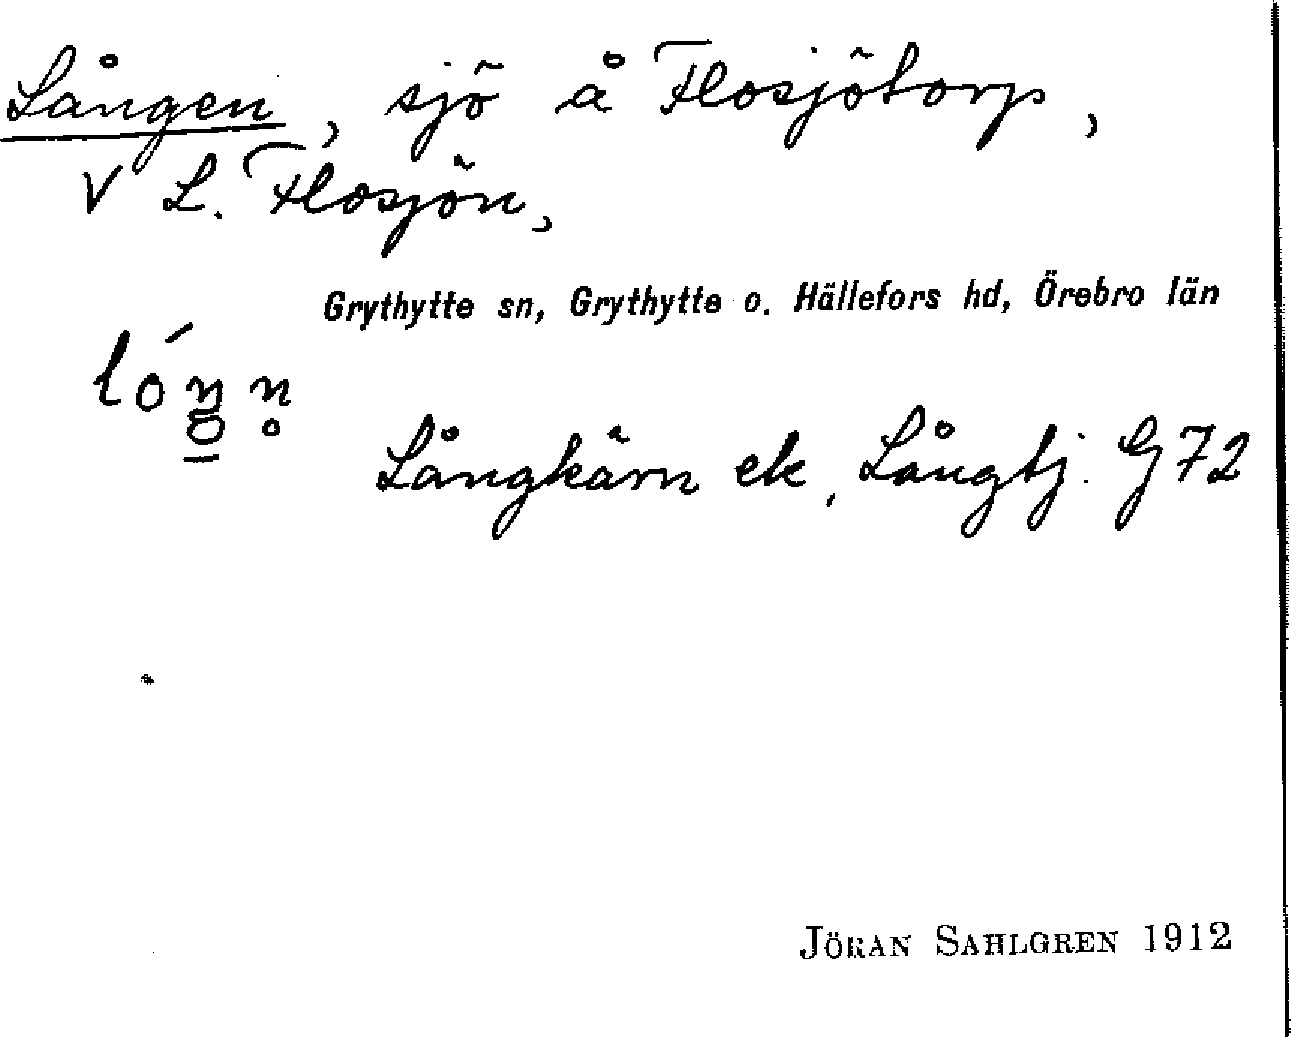 Lången, sjö å Flosjötorp,
V L. Flosjön,
Grythytte sn, Grythytte o. Hällefors hd, Örebro län
Långkärn ek, Långtj. G 72
JÖRAN SAHLGREN 1912